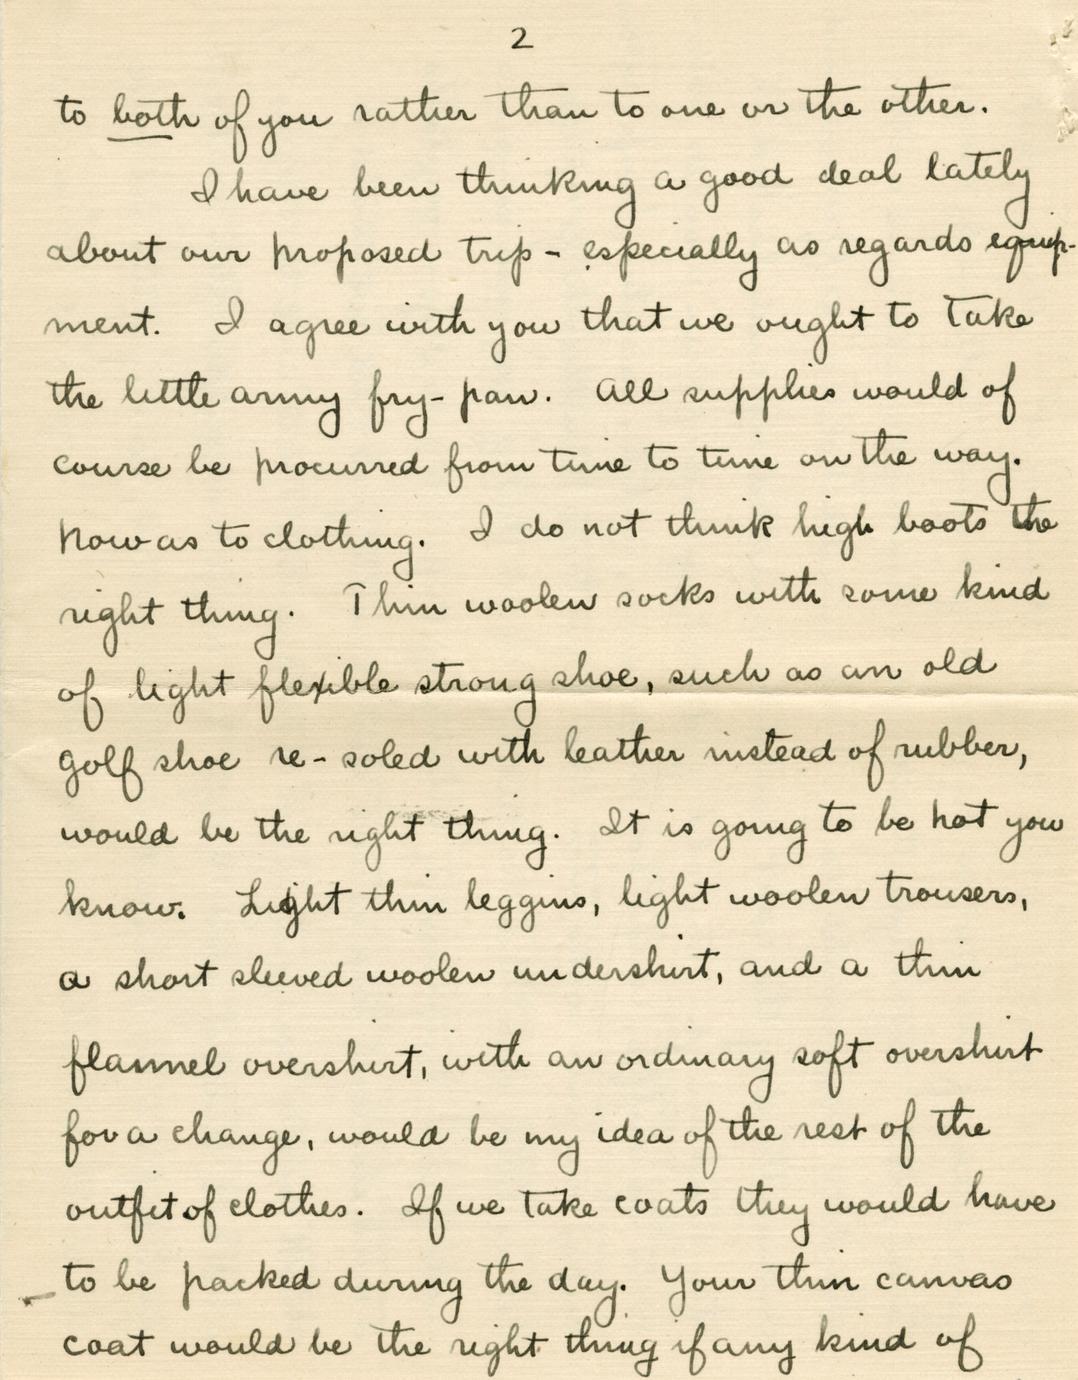 2
to both of you rather than to one or the other.
I have been thinking a good deal lately
about our proposed trip - especially as regards equip-
ment. I agree with you that we ought to take
the little army fry-pan. All supplies would of
course be procurred from time to time on the way.
Now as to clothing. I do not think high boots the
right thing. Thin woolen socks with some kind
of light flexible strong shoe, such as an old
golf shoe re-soled with leather instead of rubber,
would be the right thing. It is going to be hot you
know. Light thin leggins, light woolen trousers,
a short sleeved woolen undershirt, and a thin
flannel overshirt, with an ordinary soft overshirt
for a change, would be my idea of the rest of the
outfit of clothes. If we take coats they would have
to be packed during the day. Your thin canvas
coat would be the right thing if any kind of